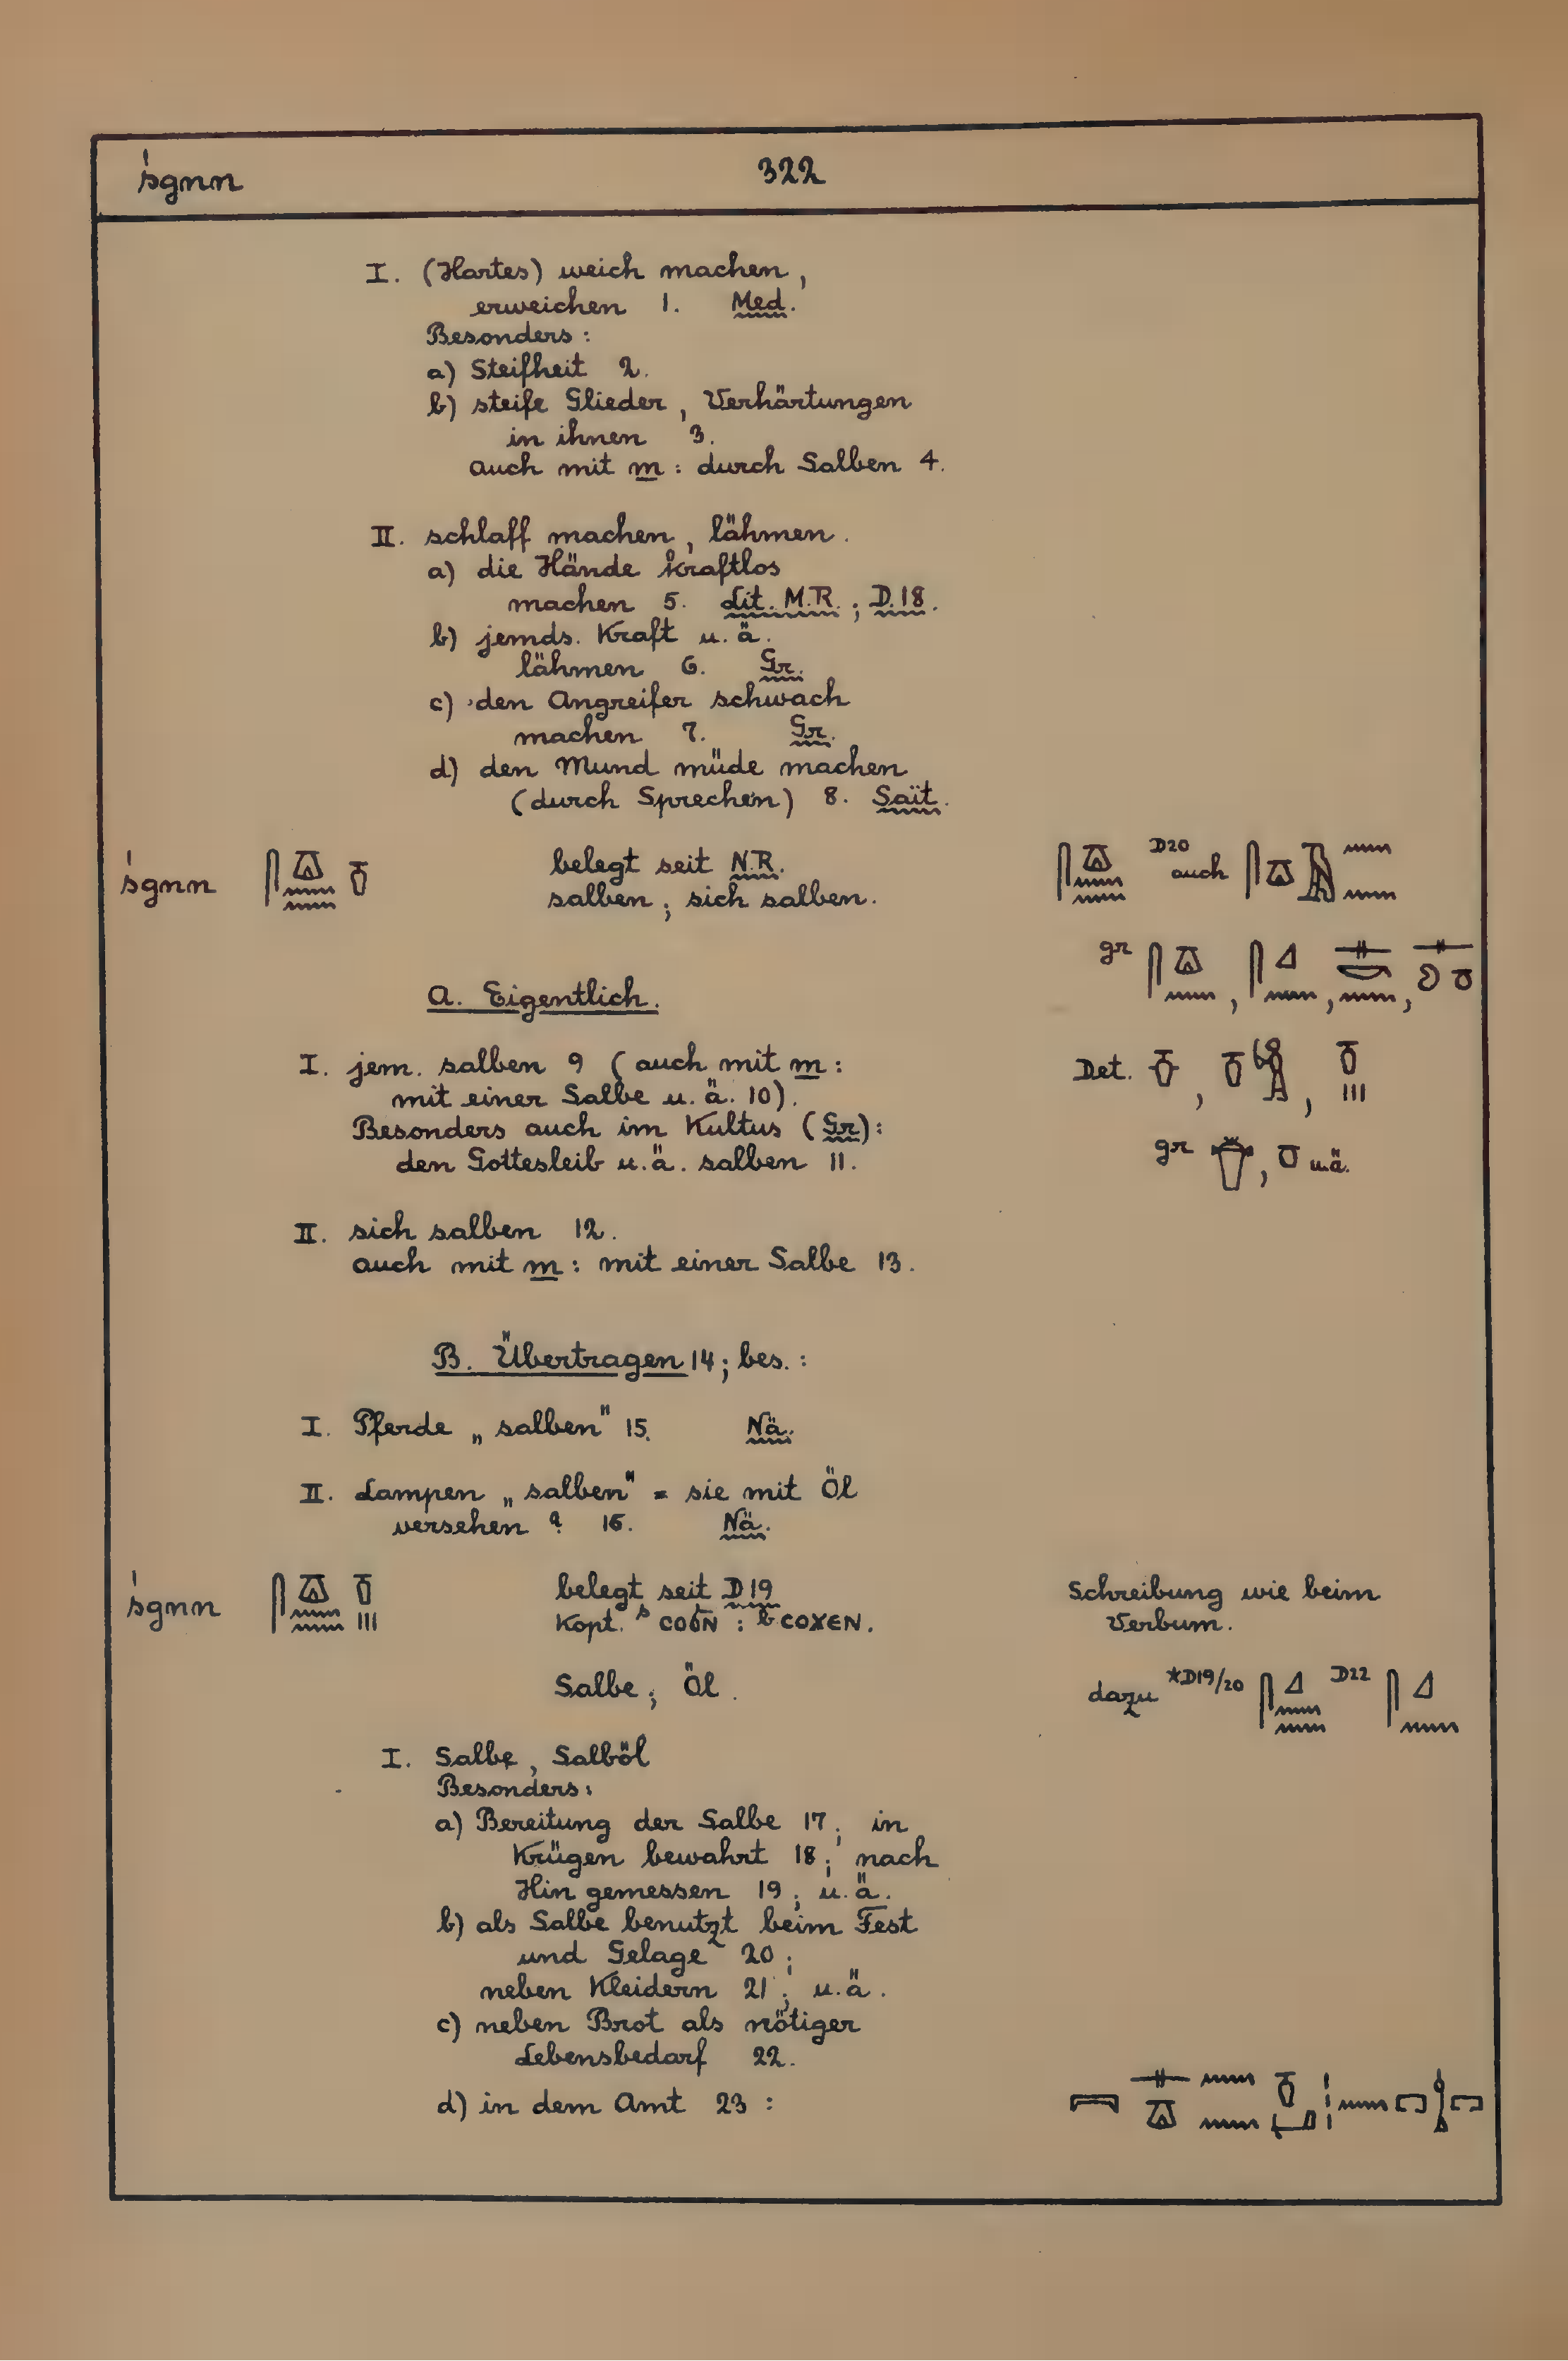 śgnn 322
I. (Hartes) weich machen,
erweichen 1. Med.
Besonders:
a) Steifheit 2.
b) steife Glieder, Verhärtungen
in ihnen 3.
auch mit m: durch Salben 4.
II. schlaff machen, lähmen.
a) die Hände kraftlos
machen 5. Lit. M.R.; D.18.
b) jemds. Kraft u.ä.
lähmen 6. Gr.
c) den Angreifer schwach
machen 7. Gr.
d) den Mund müde machen
(durch Sprechen) 8. Saït.
śgnn belegt seit N.R. D20 auch
salben; sich salben.
gr
A. Eigentlich.
I. jem. salben 9 (auch mit m: Det.
mit einer Salbe u.ä. 10).
Besonders auch im Kultus (Gr):
den Gottesleib u.ä. salben 11. gr u.ä.
II. sich salben 12.
auch mit m: mit einer Salbe 13.
B. Übertragen 14; bes.:
I. Pferde „salben" 15. Nä.
II. Lampen „salben" = sie mit Öl
versehen ? 16. Nä.
śgnn belegt seit D19 Schreibung wie beim
Kopt. s ⲥⲟϭⲛ̄ : b ⲥⲟϫⲉⲛ. Verbum.
Salbe; Öl. dazu *D19/20 D22
I. Salbe, Salböl
Besonders:
a) Bereitung der Salbe 17; in
Krügen bewahrt 18; nach
Hin gemessen 19; u.ä.
b) als Salbe benutzt beim Fest
und Gelage 20;
neben Kleidern 21; u.ä.
c) neben Brot als nötiger
Lebensbedarf 22.
d) in dem Amt 23: